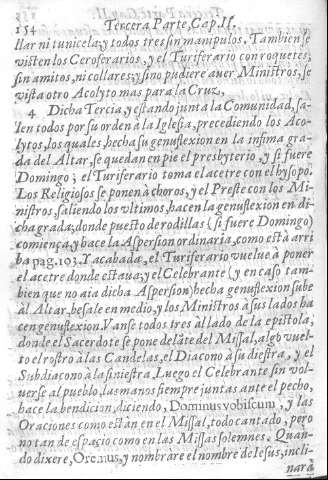 154 Tercera Parte, Cap. II.
llar ni tunicela; y todos tres sin manipulos. Tambien se
visten los Ceroferarios, y el Turiferario con roquetes,
sin amitos, ni collares; y sino pudiere auer Ministros, se
vista otro Acolyto mas para la Cruz.
4 Dicha Tercia, y estando junta la Comunidad, sa-
len todos por su orden à la Iglesia, precediendo los Aco-
lytos, los quales, hecha su genuflexion en la infima gra-
da del Altar, se quedan en pie el presbyterio, y si fuere
Domingo; el Turiferario toma el acetre con el hysopo.
Los Religiosos se ponen à choros, y el Preste con los Mi-
nistros, saliendo los vltimos, hacen la genuflexion en di-
cha grada; donde puesto de rodillas (si fuere Domingo)
comiença, y hace la Aspersion ordinaria, como està arri
ba pag. 103. Y acabada, el Turiferario vuelue à poner
el acetre donde estaua; y el Celebrante (y en caso tam-
bien que no aia dicha Aspersion) hecha genuflexion sube
àl Altar, besale en medio, y los Ministros à sus lados ha
cen genuflexion. Vanse todos tres àl lado de la epistola,
donde el Sacerdote se pone delãte del Missal, algo vuel-
to el rostro à las Candelas, el Diacono à su diestra, y el
Subdiacono à la siniestra. Luego el Celebrante sin vol-
uerse al pueblo, las manos siempre juntas ante el pecho,
hace la bendicion, diciendo, Dominus vobiscum, y las
Oraciones como estàn en el Missal, todo cantado, pero
no tan de espacio como en las Missas solemnes. Quan-
do dixere, Oremus, y nombràre el nombre de Iesus, incli-
narà